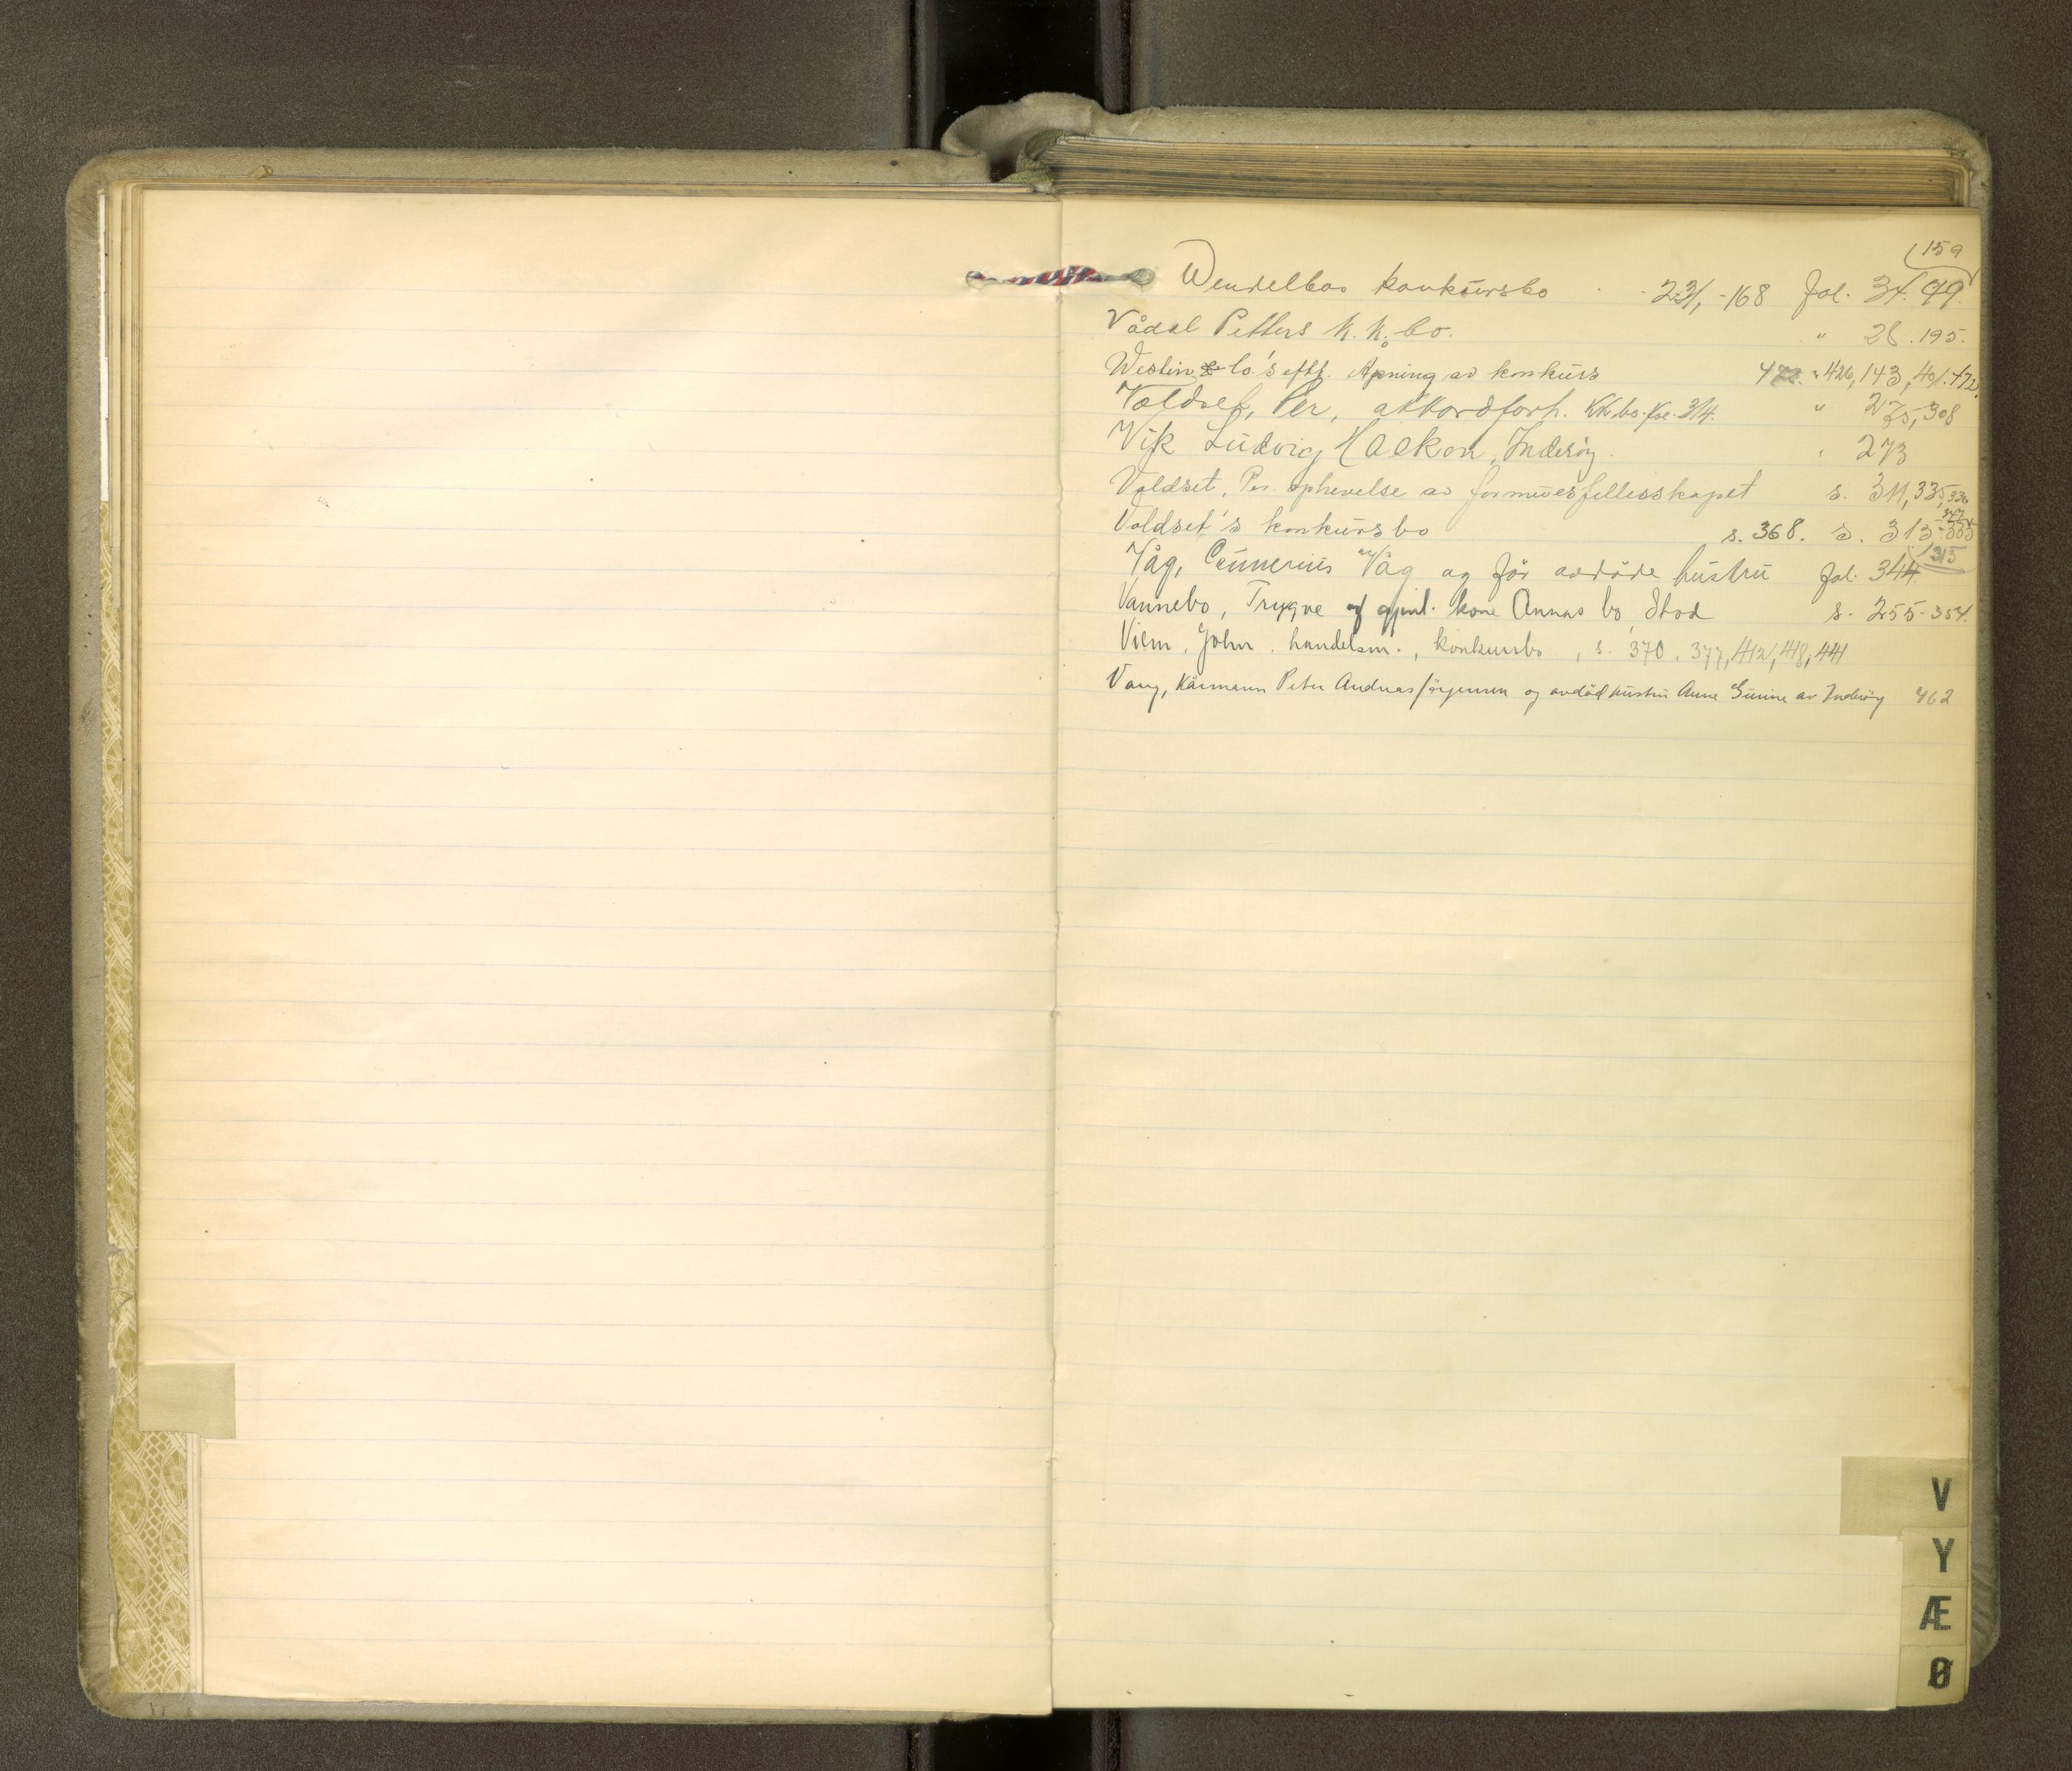 159
Wendelbos konkursbo - 231, -168 fol. 34. 99.
Vådal Petters K.K. bo. " 28. 195.
Westin & Co.'s eftf. Åpning av konkurs 426, 143, 401. 472.
Voldset, Per, akkordforh. KK bo. 314. " 275, 308
Vik Ludvig Haakon, Inderöy. " 273
Voldset, Per. ophevelse av formuesfellesskapet s. 311, 335, 336
Voldset's konkursbo s. 368. s. 315 - 355
Våg, av Våg og før avdöde hustru fol. 344 315
Vannebo, Trygve og gjenl. kone Annas bo, Stod s. 255 - 354.
Viem, John. handelsm., konkursbo, s. 370, 377, 412, 418, 441
Vang, Kårmann Peter Andreas Jörgensen og avdöd hustru Anne av Inderöy 462
V
Y
Æ
Ø